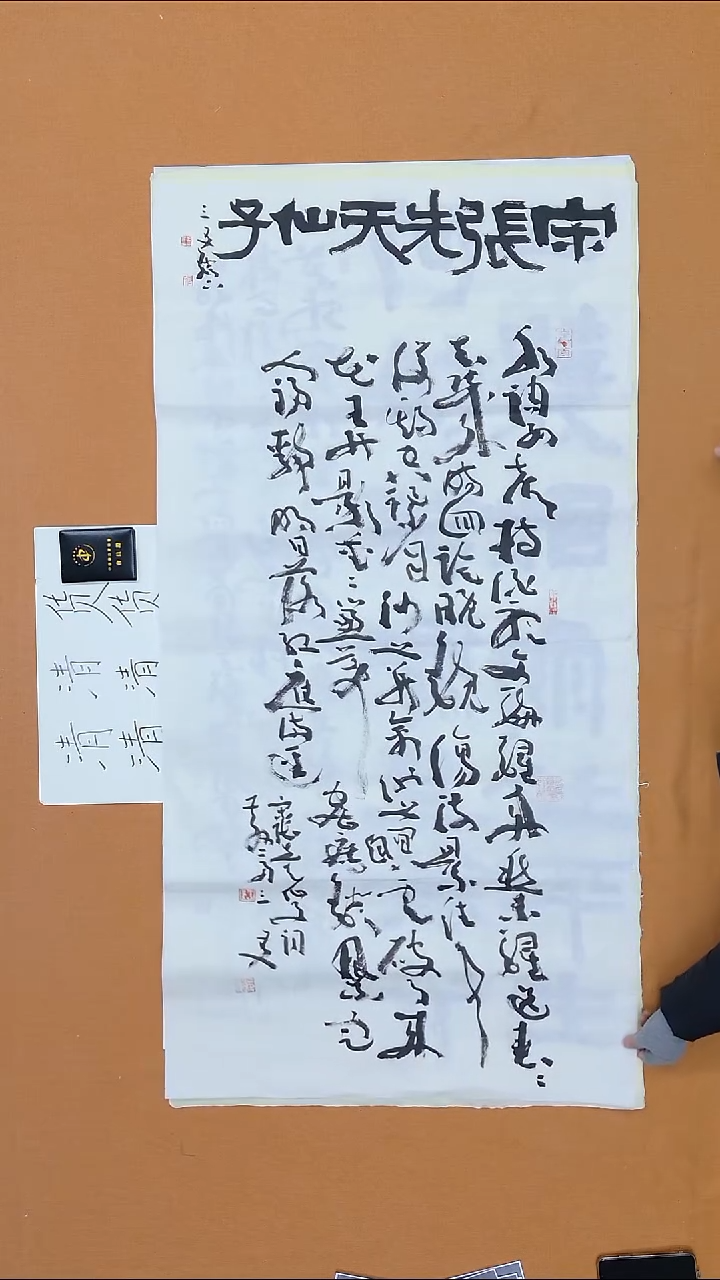 宋張先天仙子
水調數聲持酒聽午醉醒來愁未醒送春〻
去幾時回臨晚鏡傷流景往事
後期空記省沙上並禽池上暝雲破月來
花弄影重〻簾幕密遮燈風不定
人初靜明日落紅應滿徑
货清清
货清清